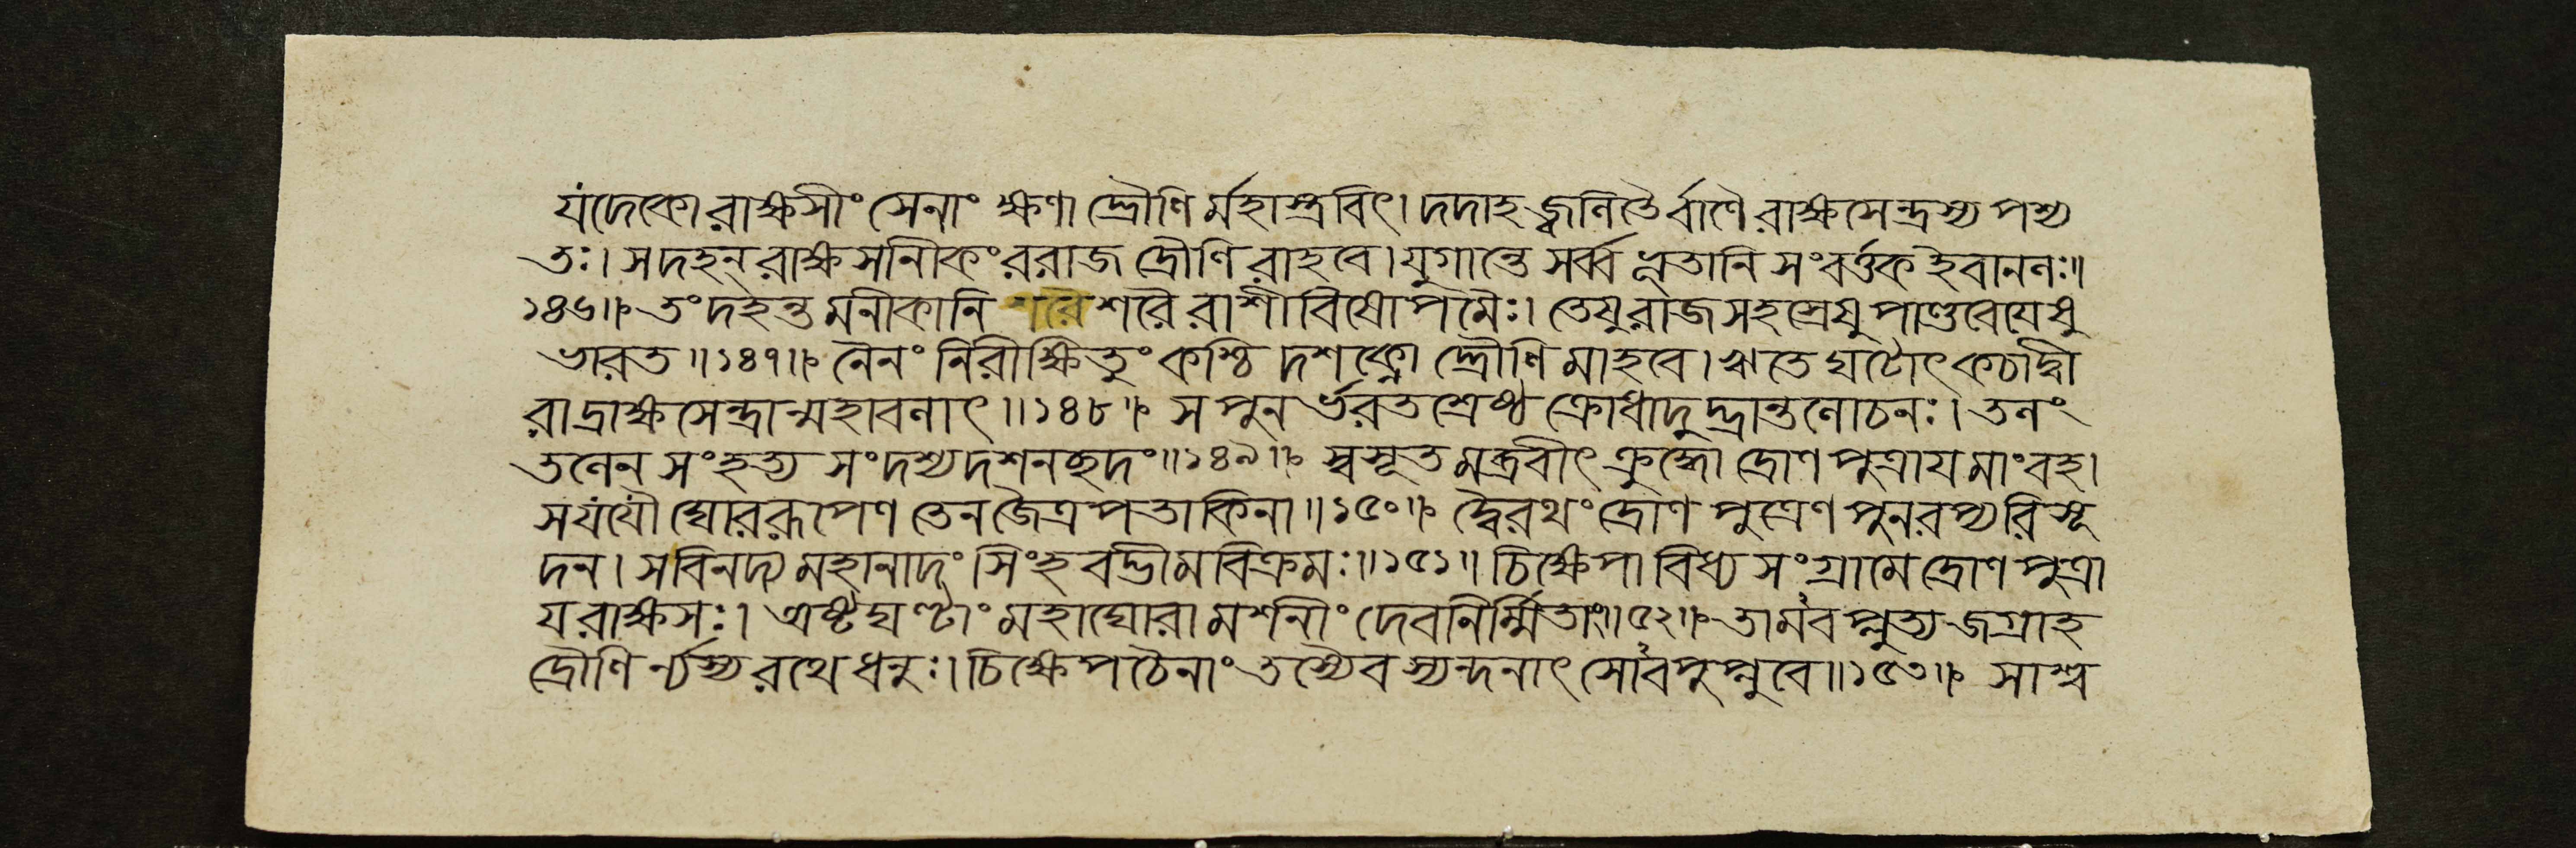 যদেকো রাক্ষসীং সেনাং ক্ষণাদ্দ্রৌণির্মহাস্ত্রবিৎ। দদাহ জ্বলিতৈর্বাণৈ রাক্ষসেন্দ্রস্য পশ্য
তঃ। স দহন্ রাক্ষসানীকং ররাজ দ্রৌণিরাহবে। যুগান্তে সর্ব্বভূতানি সংবর্ত্তক ইবানলঃ॥
১৪৬॥ তং দহন্তমনীকানি শরৈরাশীবিষোপমৈঃ। তেষু রাজসহস্রেষু পাণ্ডবেয়েষু
ভারত॥১৪৭॥ নৈনং নিরীক্ষিতুং কশ্চিদশক্নোদ্দ্রৌণিমাহবে। ঋতে ঘটোৎকচাদ্বী
রাদ্রাক্ষসেন্দ্রান্মহাবলাৎ॥১৪৮॥ স পুনর্ভরতশ্রেষ্ঠ ক্রোধাদুদ্ভ্রান্তলোচনঃ। তলং
তলেন সংহত্য সংদশ্য দশনচ্ছদং॥১৪৯॥ স্বসূতমব্রবীৎ ক্রুদ্ধো দ্রোণপুত্রায় মাং বহ।
স যযৌ ঘোররূপেণ তেন জৈত্রপতাকিনা॥১৫০॥ দ্বৈরথং দ্রোণপুত্রেণ পুনরপ্যরিসূ
দন। স বিনদ্য মহানাদং সিংহবদ্ভীমবিক্রমঃ॥১৫১॥ চিক্ষেপাবিধ্য সংগ্রামে দ্রোণপুত্রা
য় রাক্ষসঃ। অষ্টঘণ্টাং মহাঘোরামশনীং দেবনির্ম্মিতাং॥৫২॥ তামবপ্লুত্য জগ্রাহ
দ্রৌণির্ন্যস্য রথে ধনুঃ। চিক্ষেপ চৈনাং তস্যৈব স্যন্দনাৎ সোবপুপ্লুবে॥১৫৩॥ সাশ্ব